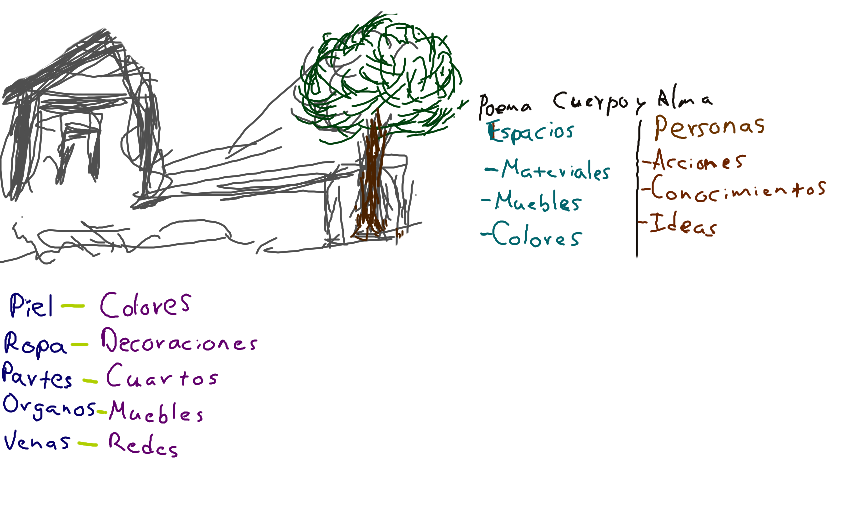 Poema Cuerpo y Alma
Espacios
-Materiales
-Muebles
-Colores
Personas
-Acciones
-Conocimientos
-Ideas
Piel - Colores
Ropa - Decoraciones
Partes - Cuartos
Organos - Muebles
Venas - Redes